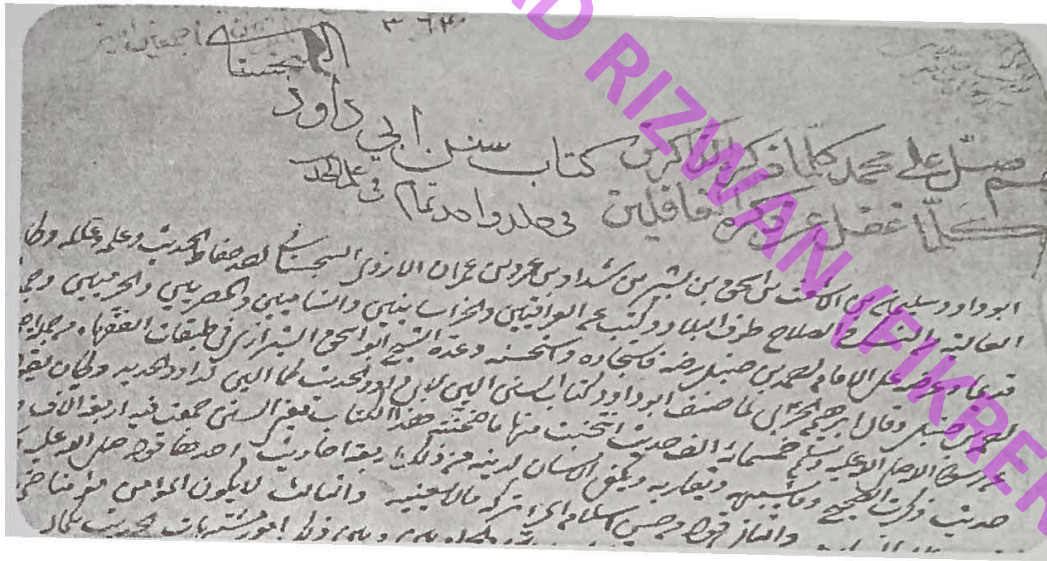 ٣٦٣٠
السجستاني
صل على محمد كلما ذكره الذاكرون كتاب سنن ابي داود
كلما غفل عن ذكره الغافلين في مجلد واحد تمام في علم الحديث
ابو داود سليمان بن الاشعث بن اسحق بن بشير بن شداد بن عمرو بن عمران الازدى السجستاني احد حفاظ الحديث وعلمه وعلله وكا
العالية النسك والصلاح طوف البلاد وكتب عن العراقيين والخراسانيين والشاميين والمصريين والحرميين وجمع
قديما وعرضه على الامام احمد بن حنبل رضه فاستجاده واستحسنه وعده الشيخ ابو اسحق الشيرازي في طبقات الفقهاء من جملة
احمد بن حنبل وقال ابرهيم الحربي لما صنف ابو داود كتاب السنن الين لابي داود الحديث كما الين لداود الحديد وكان يقول
عن رسول الله صلى الله عليه وسلم خمسمائة الف حديث انتخبت منها ما ضمنته هذا الكتاب يعني السنن جمعت فيه اربعة الاف
حديث ذكرت الصحيح وما يشبهه ويقاربه ويكفي الانسان لدينه من ذلك اربعة احاديث احدها قوله صلى الله عليه
والثاني قوله من حسن اسلام المرء تركه مالا يعنيه والثالث لا يكون المؤمن مؤمنا حتى
امور مشتبهات الحديث بكماله
AD RIZWAN (FIKRER